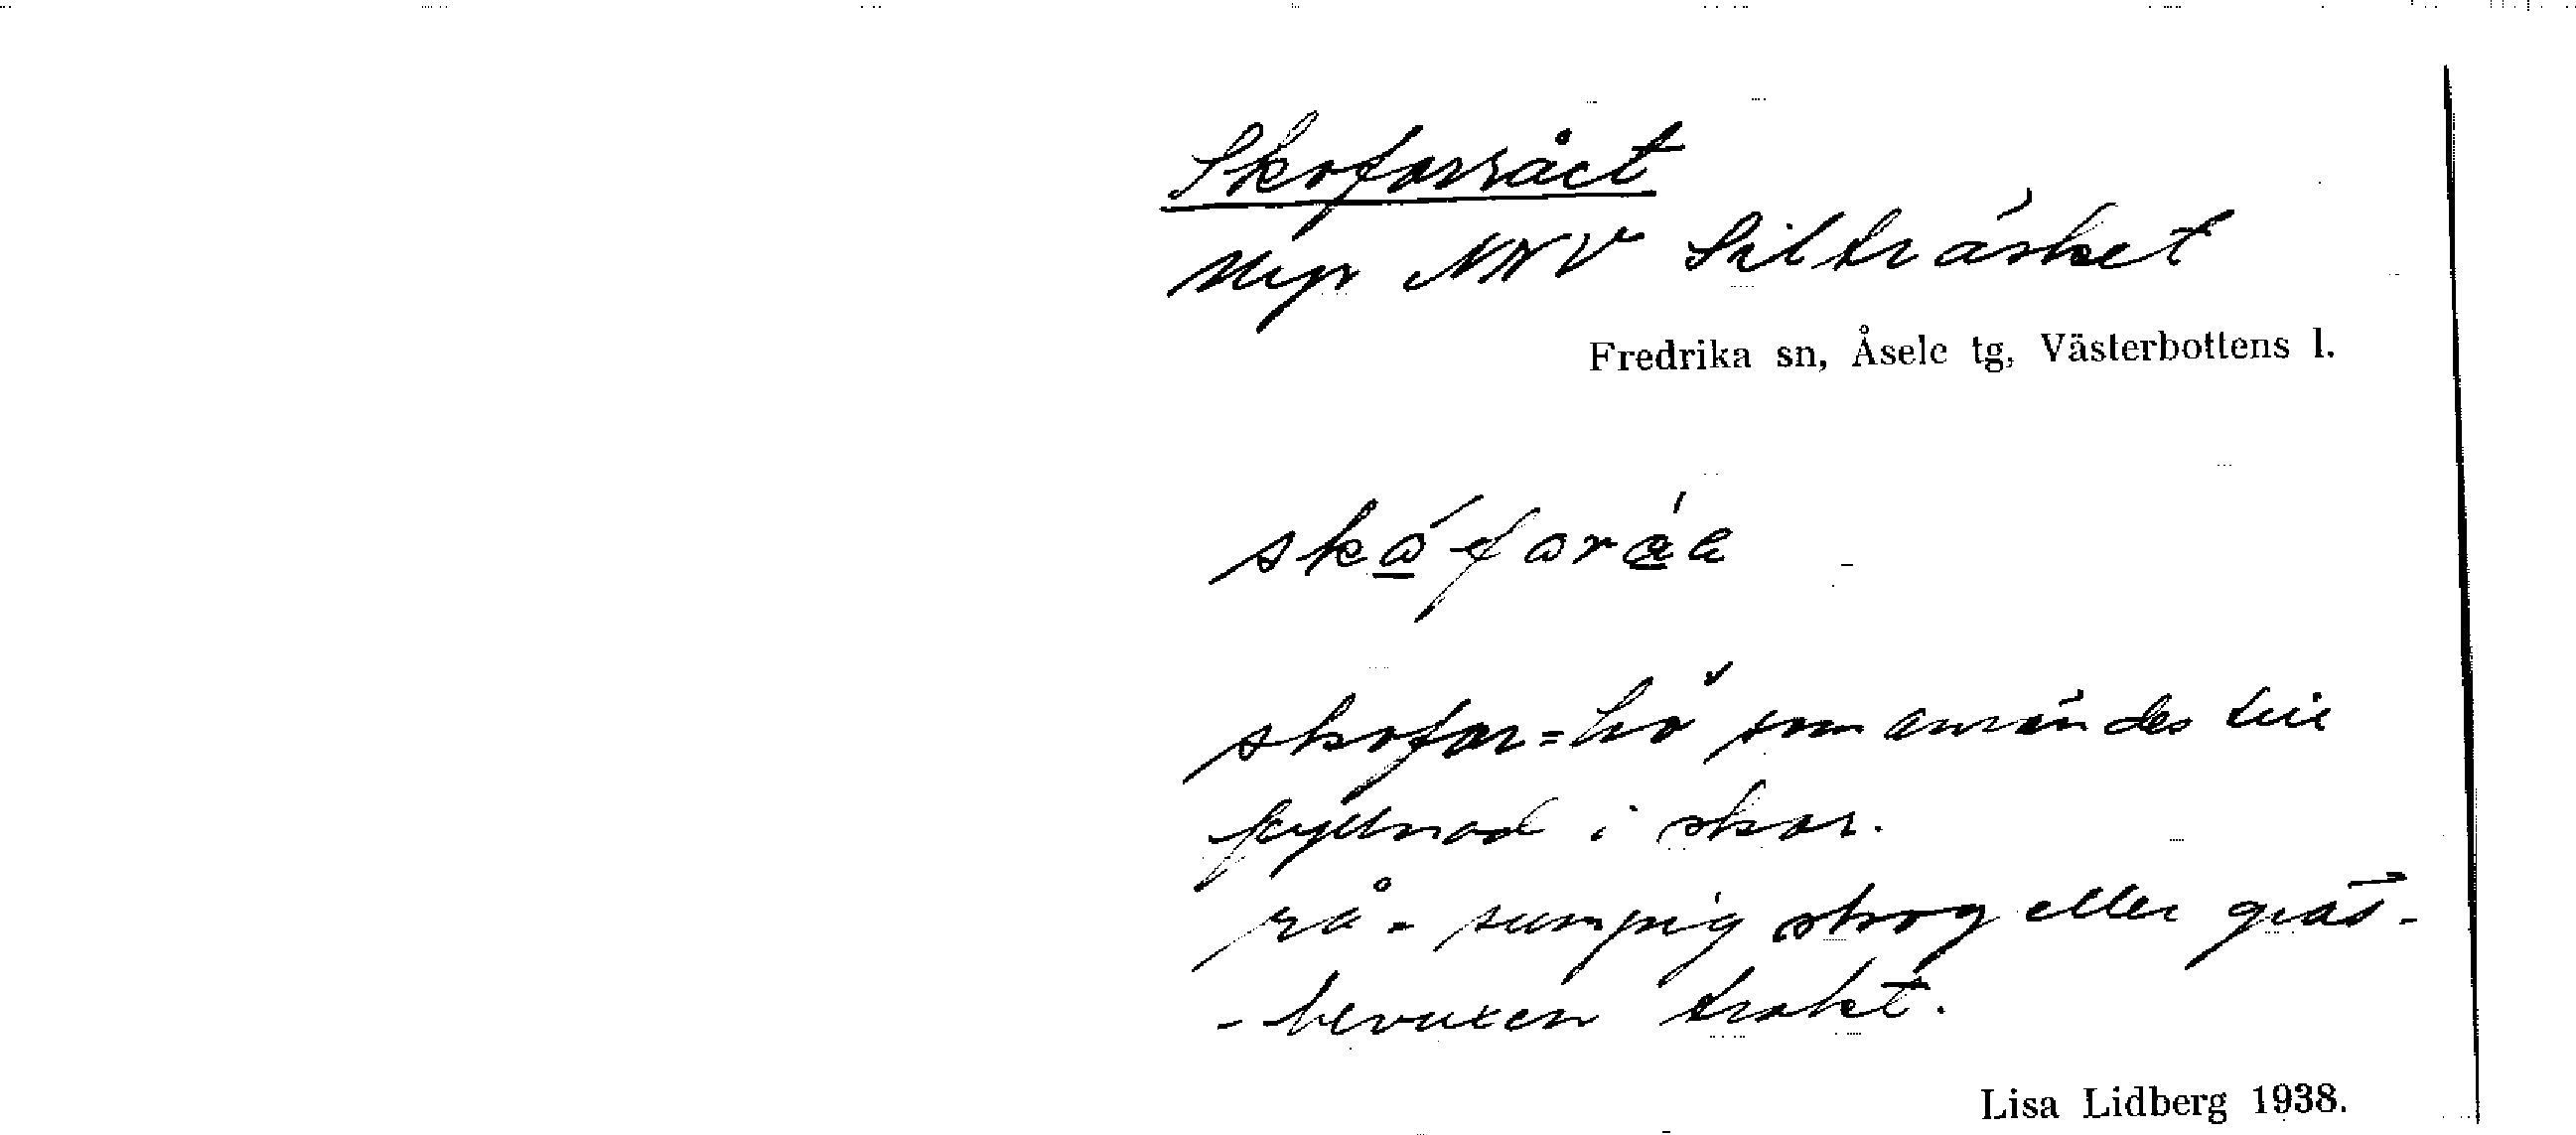 Skoforråct
Myr NNV Silträsket
Fredrika sn, Åsele tg, Västerbottens l.
skofor=hö som användes till
fyllnad i skor.
rå = sumpig skog eller gräs-
-bevuxen trakt.
Lisa Lidberg 1938.